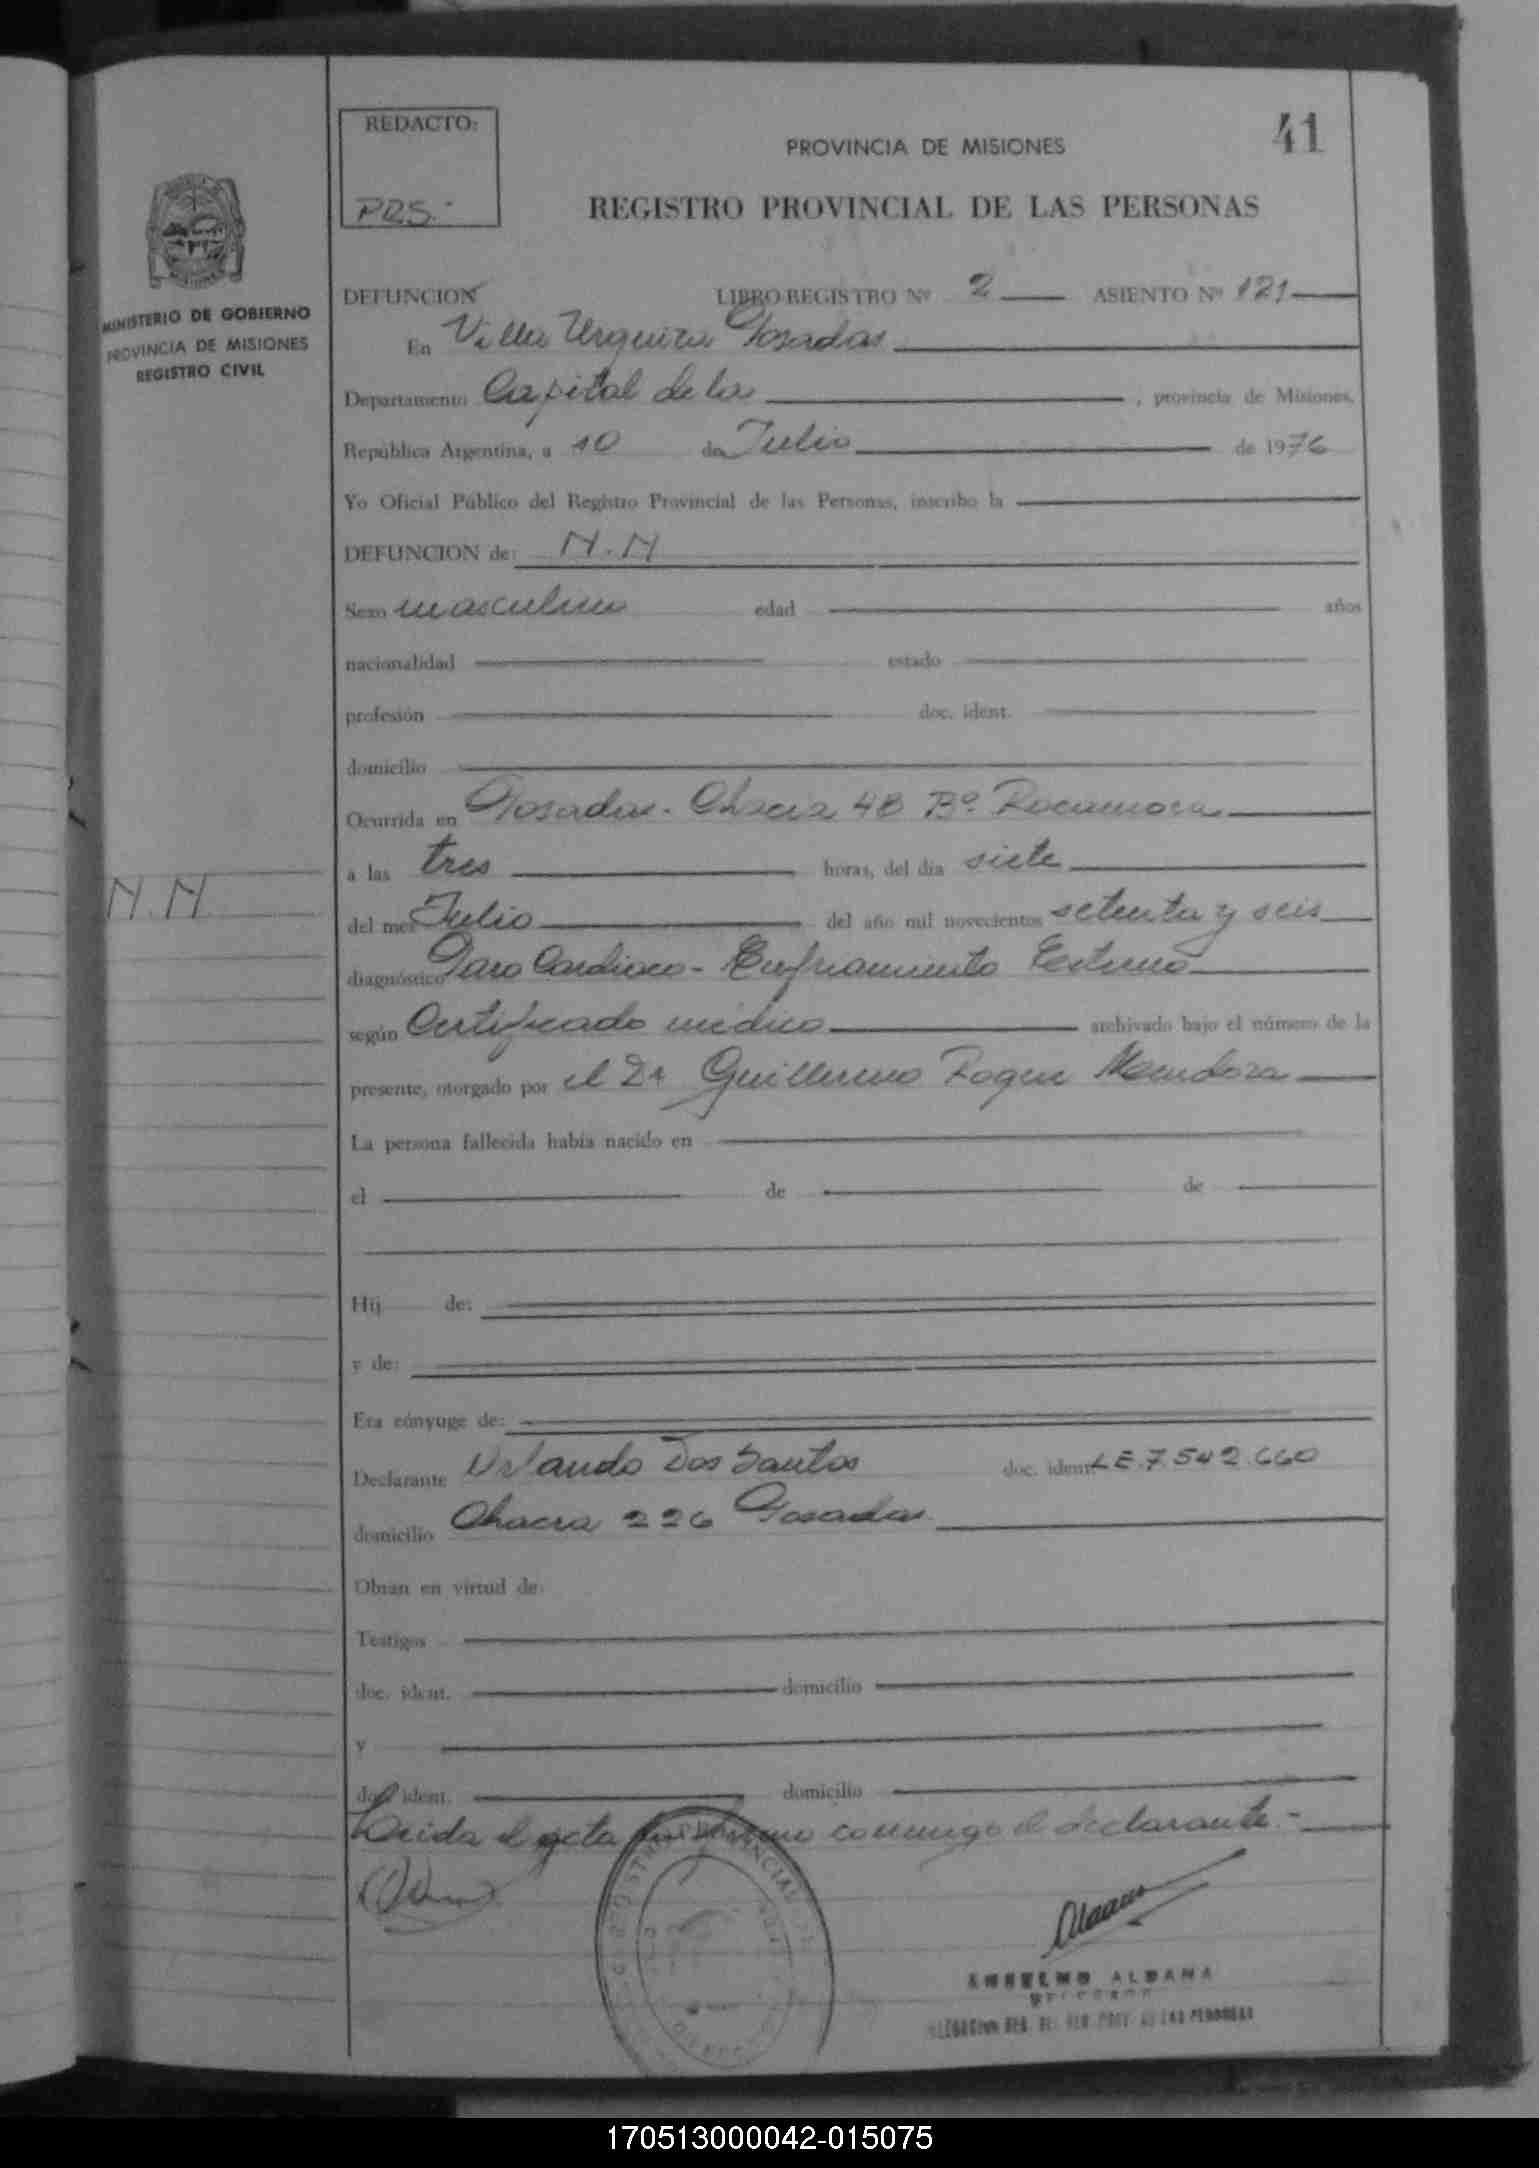 41
REDACTO:
PRS.-
PROVINCIA DE MISIONES
REGISTRO PROVINCIAL DE LAS PERSONAS
MINISTERIO DE GOBIERNO
PROVINCIA DE MISIONES
REGISTRO CIVIL
DEFUNCION LIBRO REGISTRO Nº 2 ASIENTO Nº 121
En Villa Urquiza Posadas
Departamento Capital de la , provincia de Misiones,
República Argentina, a 10 de Julio de 1976
Yo Oficial Público del Registro Provincial de las Personas, inscribo la
DEFUNCION de: N.N
Sexo masculino edad años
nacionalidad estado
profesión doc. ident.
domicilio
Ocurrida en Posadas - Chacra 48 Bº Rocamora
a las tres horas, del día siete
N.N.
del mes Julio del año mil novecientos setenta y seis
diagnóstico Paro Cardiaco - Enfriamiento Extremo
según Certificado médico archivado bajo el número de la
presente, otorgado por el Dr Guillermo Roque Mendoza
La persona fallecida había nacido en
el de de
Hij de:
y de:
Era cónyuge de:
Declarante Orlando Dos Santos doc. ident. LE.7.542.660
domicilio Chacra 226 Posadas
Obran en virtud de:
Testigos
doc. ident. domicilio
y
doc. ident. domicilio
Leida el acta conmigo el declarante.-
ANSELMO ALDANA
170513000042-015075